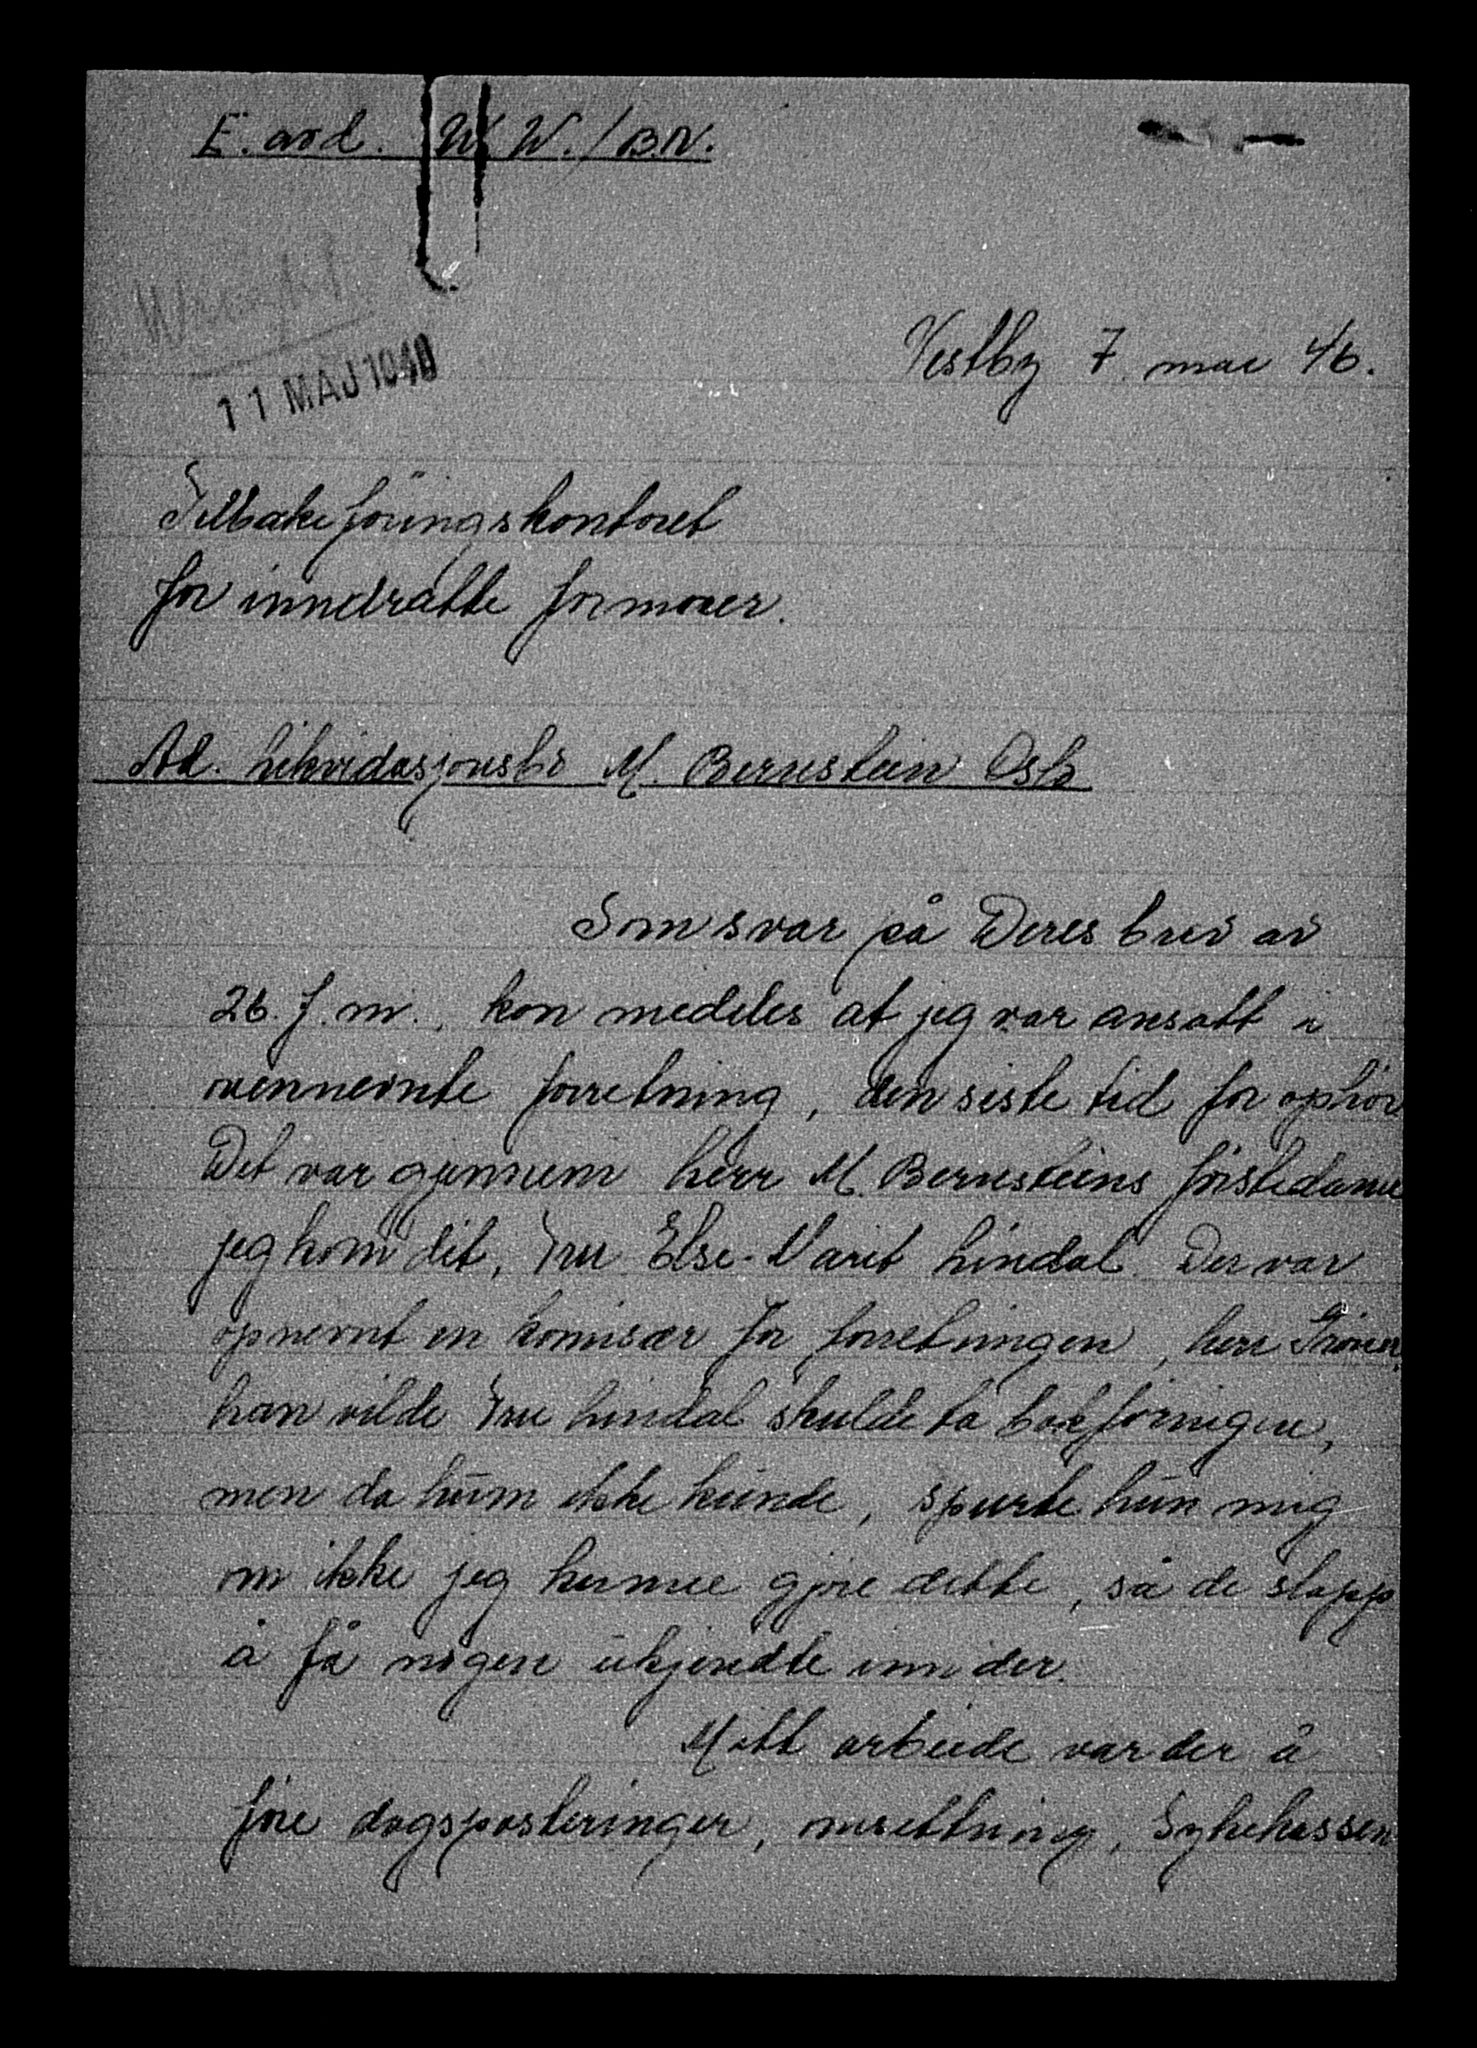 E. avd. W. W./B.N.
Vestby 7. mai 46.
11 MAJ 1946
Tilbakeföringskontoret
for inndratte formuer.
Ad. likvidasjonsbo M. Bernstein Oslo
Som svar på Deres brev av
26. f.m., kan meddeles at jeg var ansatt i
ovennevnte forretning, den siste tid för ophör
Det var gjennem herr M. Bernsteins förstedame
jeg kom dit, Fru Else-Marit Lindal. Der var
opnevnt en komisær for forretningen, herr
han vilde Fru Lindal skulde ta bokföringen,
men da hun ikke kunde, spurte hun mig
om ikke jeg kunne gjöre dette, så de slapp
å få nogen ukjendte inn der.
Mitt arbeide var der å
före dagsposteringer, omsettning, Sykekassen